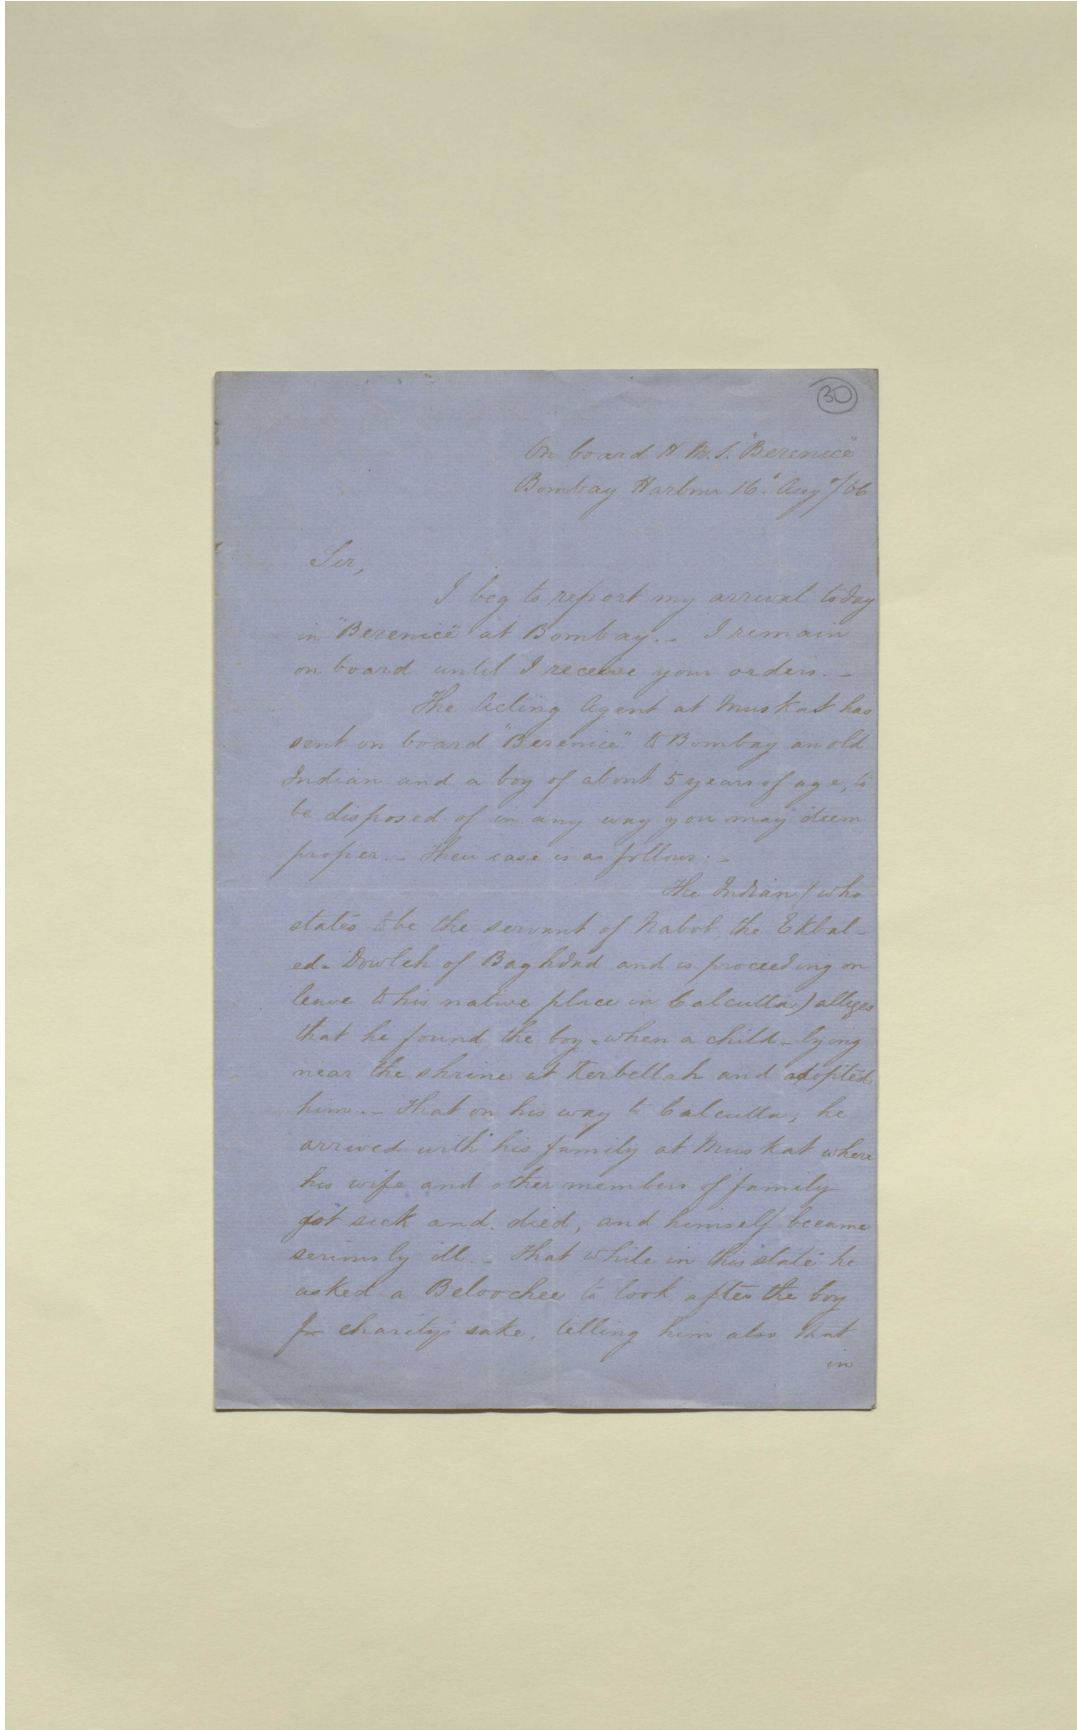 30
On board H.M.S. "Berenice"
Bombay Harbour 16th Augt/66
Sir,
I beg to report my arrival today
in "Berenice" at Bombay. - I remain
on board until I receive your orders. -
The Acting Agent at Muskat has
sent on board "Berenice" to Bombay an old
Indian and a boy of about 5 years of age, to
be disposed of in any way you may deem
proper. - Their case is as follows. -
The Indian (who
states to be the servant of Nabob the Ekbal-
ed-Dowleh of Baghdad and is proceeding on
leave to his native place in Calcutta) alleges
that he found the boy - when a child - lying
near the shrine at Kerbellah and adopted
him. - That on his way to Calcutta, he
arrived with his family at Muskat where
his wife and other members of family
got sick and died, and himself became
seriously ill. - That while in this state he
asked a Beloochee to look after the boy
for charity's sake, telling him also that
in